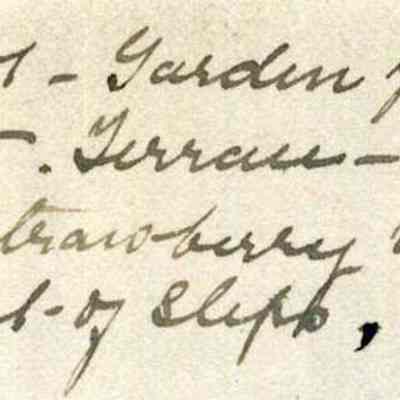 - Garden
. Terrace -
trawberry
of Steps,